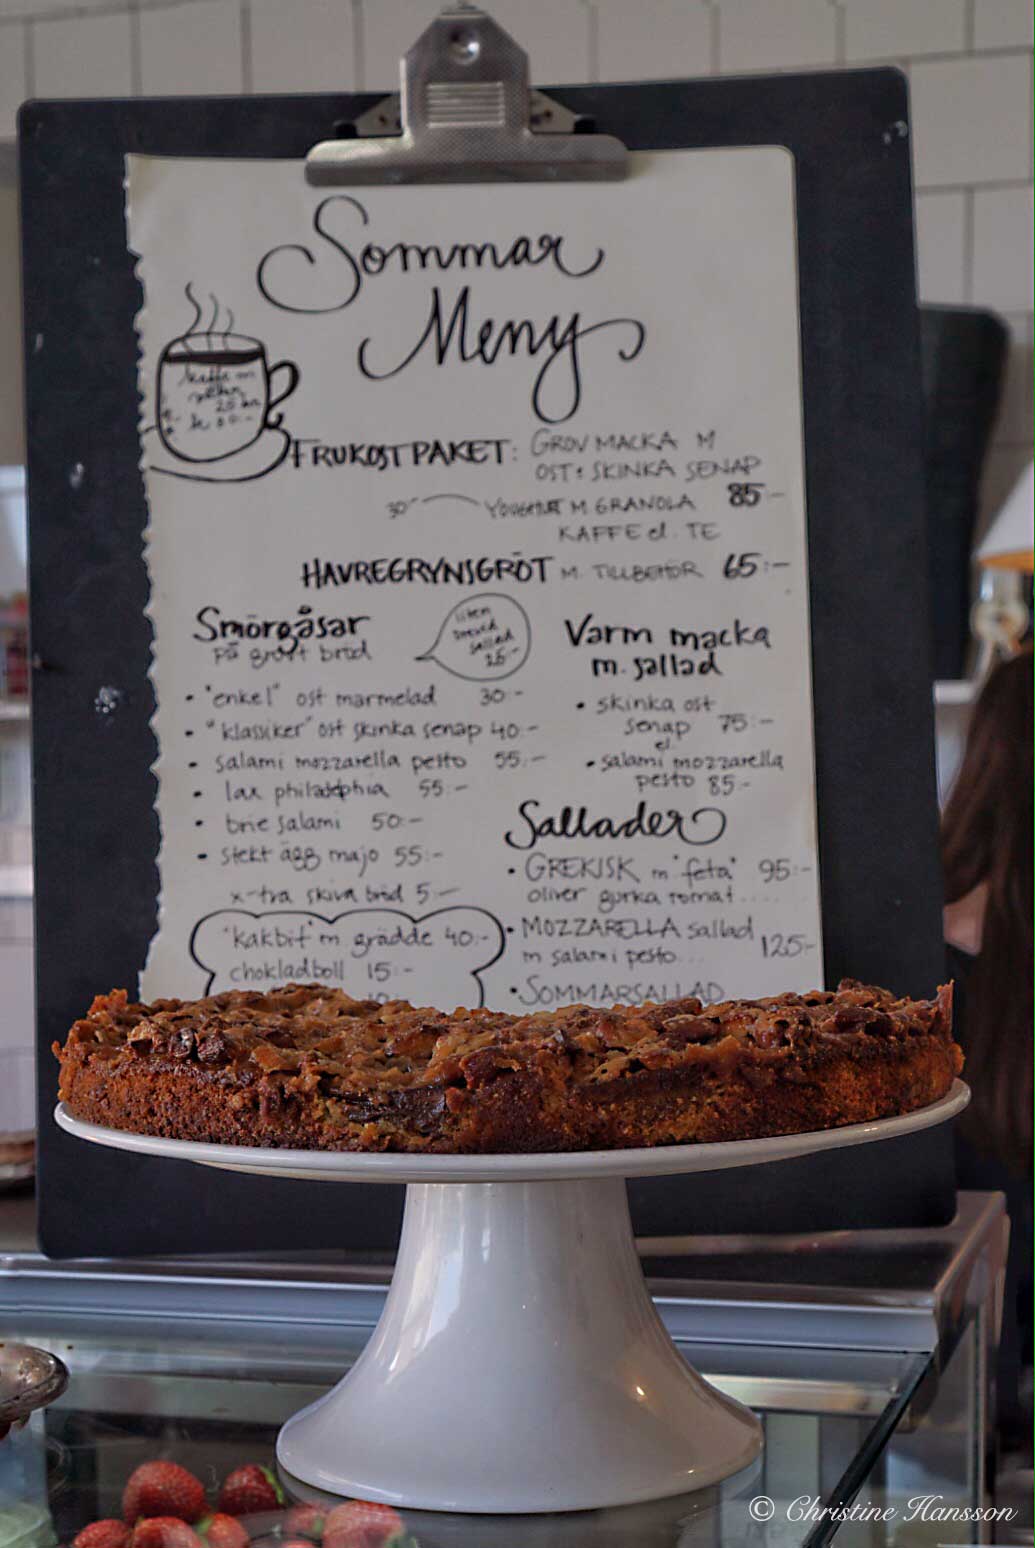 Sommar
Meny
kaffe m
FRUKOSTPAKET: GROV MACKA M
OST & SKINKA SENAP
30 YOUGHURT M. GRANOLA 85-
KAFFE el. TE
HAVREGRYNSGRÖT M. TILLBEHÖR 65:-
Smörgåsar
på grovt bröd
liten
sallad
25:-
• "enkel" ost marmelad 30:-
• "klassiker" ost skinka senap 40:-
• salami mozzarella pesto 55:-
• lax philadelphia 55:-
• brie salami 50:-
• stekt ägg majo 55:-
x-tra skiva bröd 5:-
"kakbit" m grädde 40:-
chokladboll 15:-
Varm macka
m. sallad
• skinka ost
senap 75:-
el.
• salami mozzarella
pesto 85:-
Sallader
• GREKISK m "feta" 95:-
oliver gurka tomat.....
• MOZZARELLA sallad
m salami pesto... 125:-
• SOMMARSALLAD
© Christine Hansson